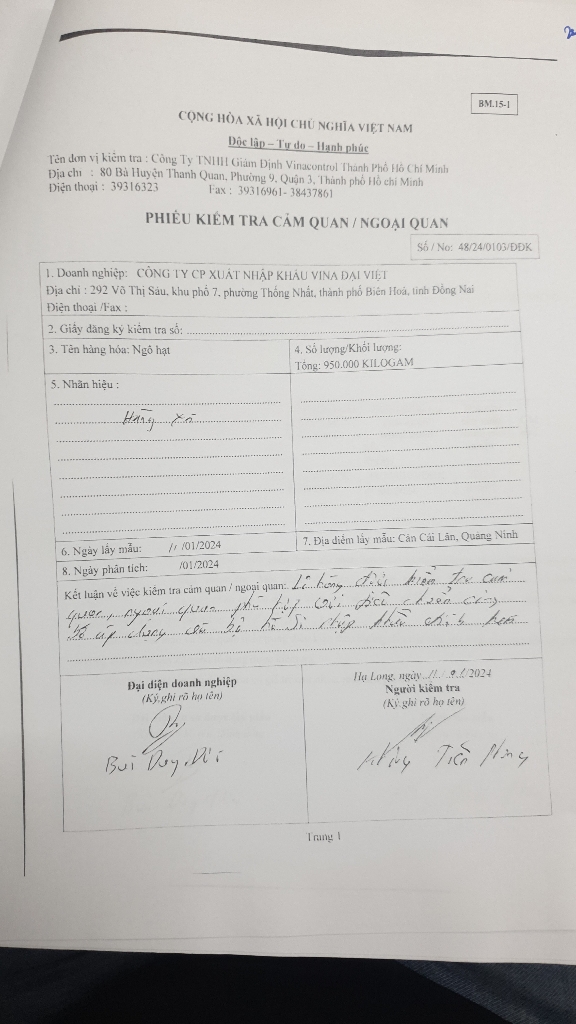 BM.15-1
CỘNG HÒA XÃ HỘI CHỦ NGHĨA VIỆT NAM
Độc lập – Tự do – Hạnh phúc
Tên đơn vị kiểm tra : Công Ty TNHH Giám Định Vinacontrol Thành Phố Hồ Chí Minh
Địa chỉ : 80 Bà Huyện Thanh Quan, Phường 9, Quận 3, Thành phố Hồ chí Minh
Điện thoại : 39316323 Fax : 39316961- 38437861
PHIẾU KIỂM TRA CẢM QUAN / NGOẠI QUAN
Số / No: 48/24/0103/ĐĐK
1. Doanh nghiệp: CÔNG TY CP XUẤT NHẬP KHẨU VINA ĐẠI VIỆT
Địa chỉ : 292 Võ Thị Sáu, khu phố 7, phường Thống Nhất, thành phố Biên Hoà, tỉnh Đồng Nai
Điện thoại /Fax :
2. Giấy đăng ký kiểm tra số:
3. Tên hàng hóa: Ngô hạt
4. Số lượng/Khối lượng:
Tổng: 950.000 KILOGAM
5. Nhãn hiệu :
Hàng xá
6. Ngày lấy mẫu: 11/01/2024
7. Địa điểm lấy mẫu: Cảng Cái Lân, Quảng Ninh
8. Ngày phân tích: /01/2024
Kết luận về việc kiểm tra cảm quan / ngoại quan: Lô hàng đạt kiểm tra cảm
quan, ngoại quan phù hợp với tiêu chuẩn công
bố áp dụng và hồ sơ nhập khẩu đính kèm
Đại diện doanh nghiệp
(Ký,ghi rõ họ tên)
Bùi Duy
Hạ Long, ngày 11/01/2024
Người kiểm tra
(Ký,ghi rõ họ tên)
Tiến
Trang 1